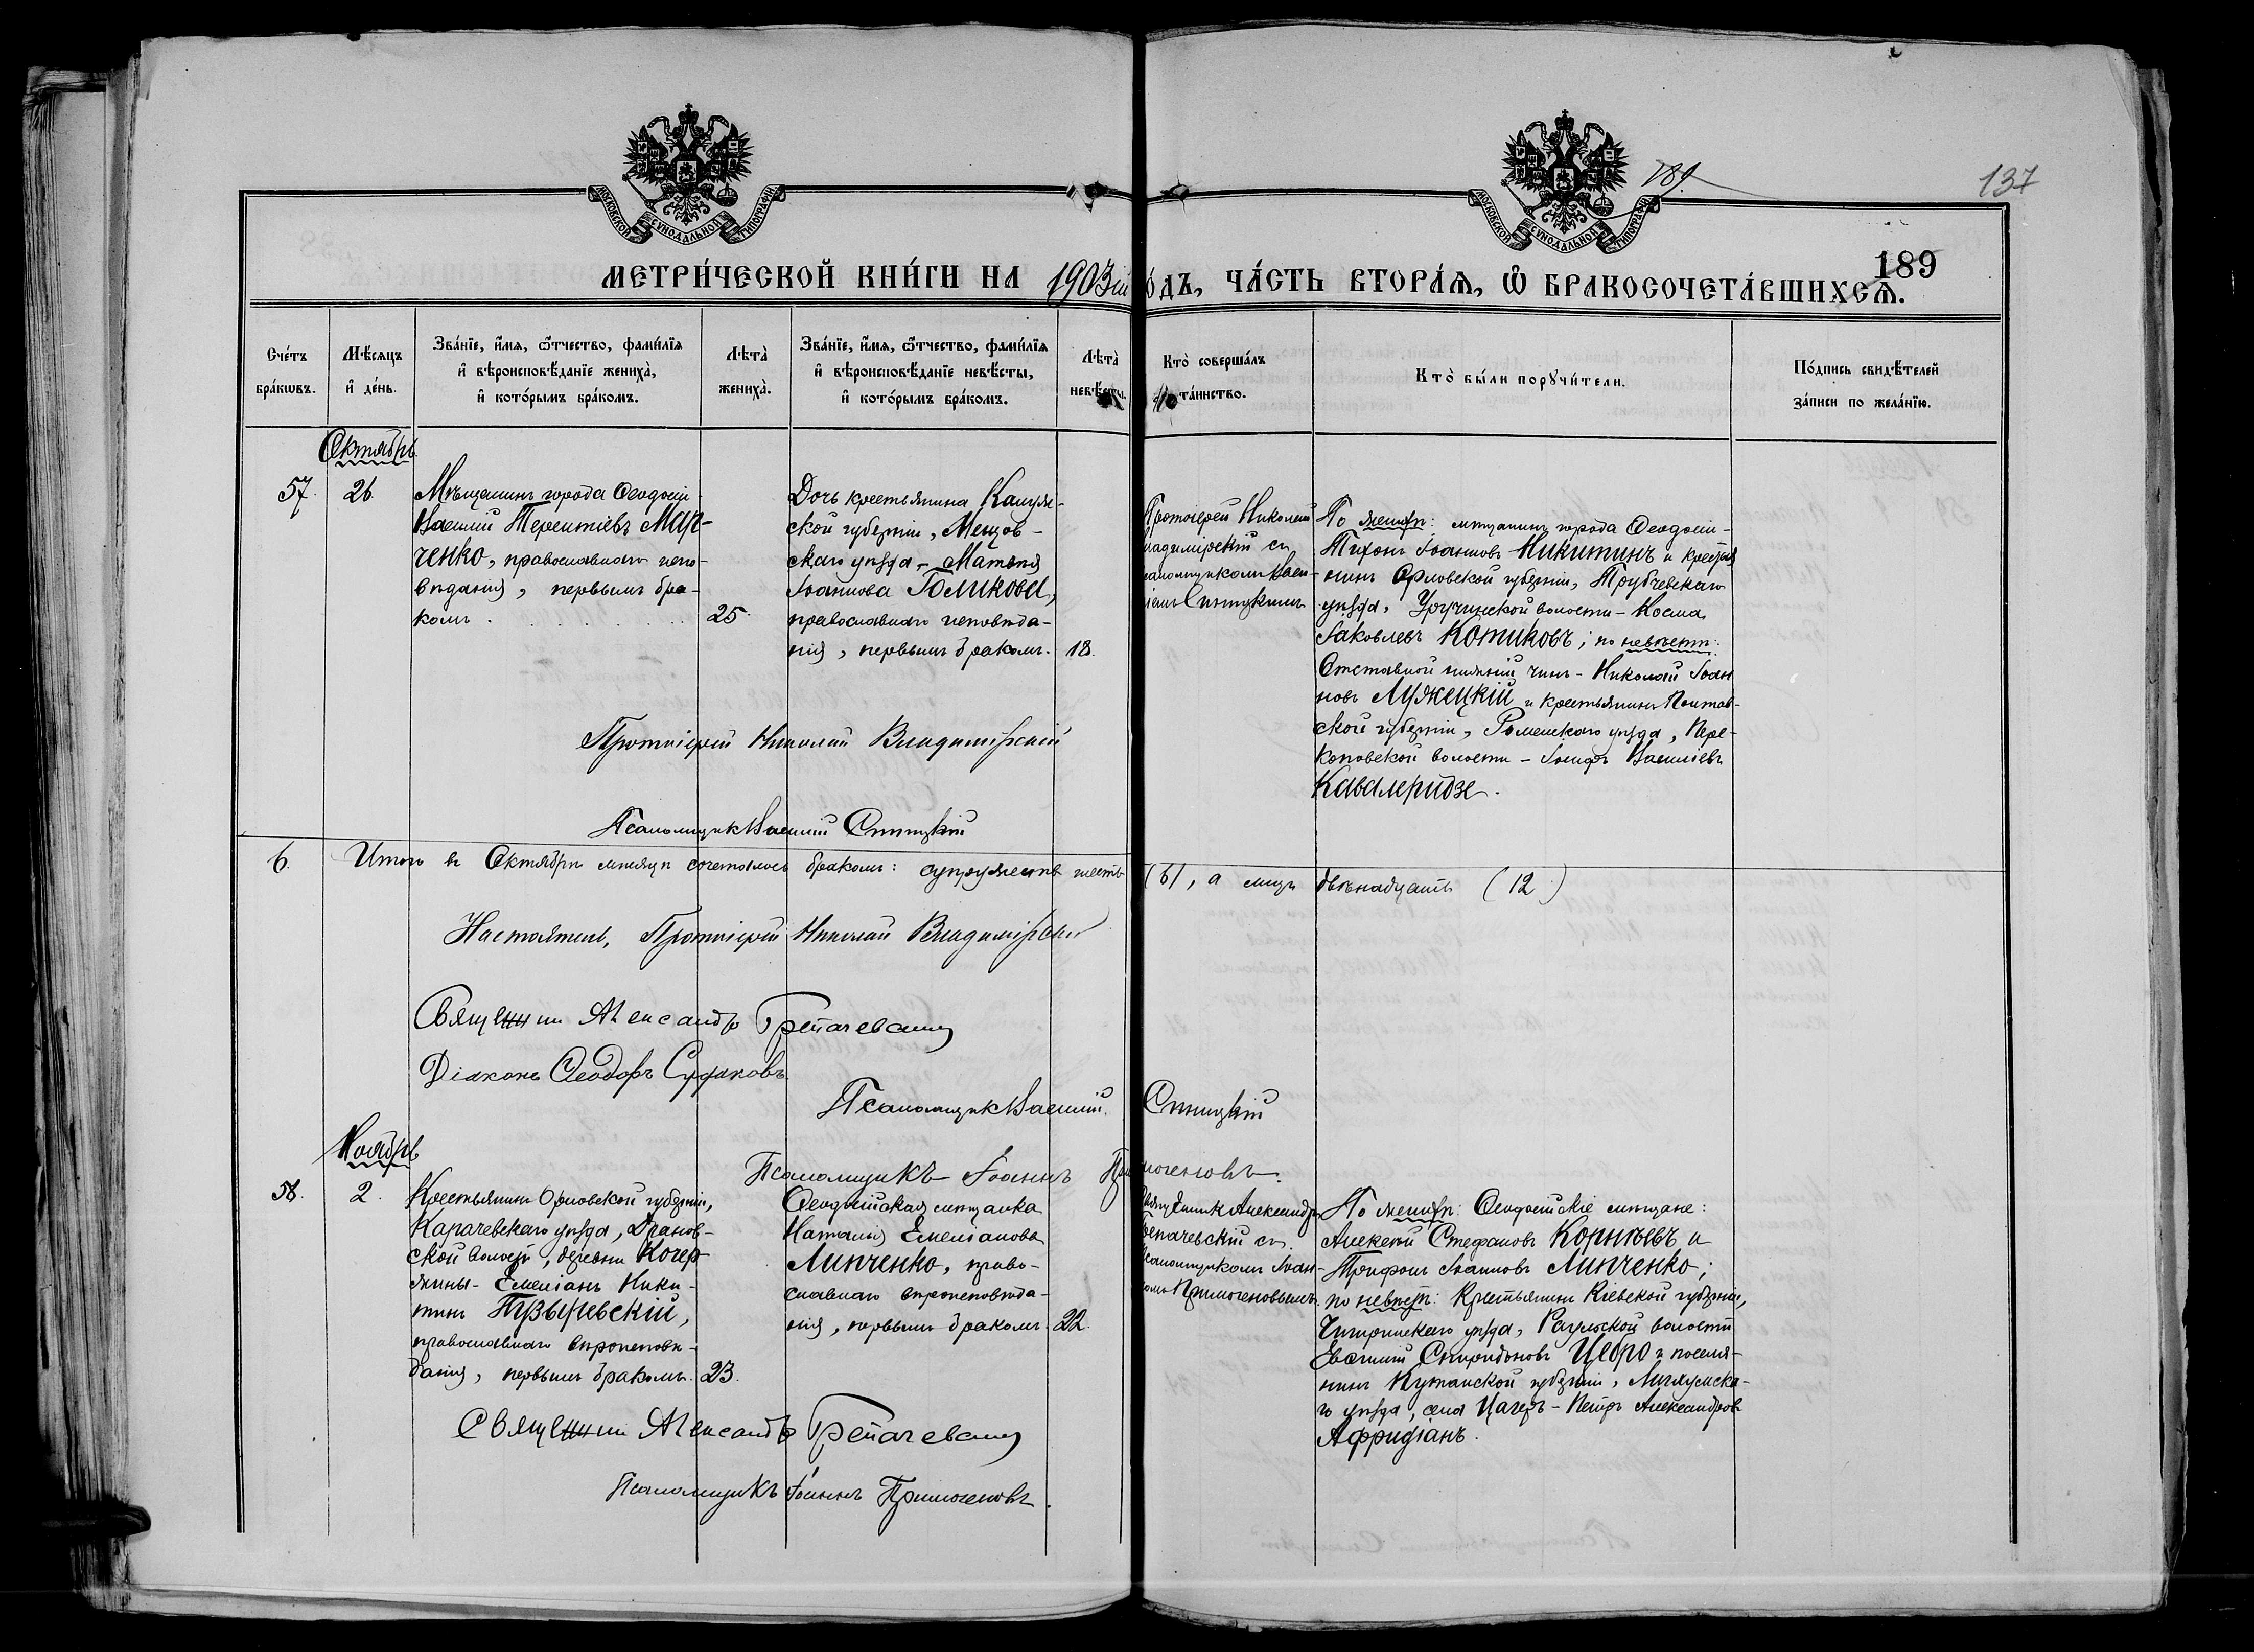 МОСКОВСКОЙ СѴНОДАЛЬНОЙ ТИПОГРАФІИ
МОСКОВСКОЙ СѴНОДАЛЬНОЙ ТИПОГРАФІИ
189.
137
189
МЕТРИ́ЧЕСКОЙ КНИ́ГИ НА 1903ій
О́ДЪ, ЧА́СТЬ ВТОРА́Я, Ѿ БРАКОСОЧЕТА́ВШИХСЯ.
Сче́тъ бра́кωвъ.
Мѣ́сяцъ и҆ де́нь.
Зва́нїе, и҆́мя, ѻ҆́тчество, фами́лїя и҆ вѣроисповѣ́данїе жениха̀, и҆ кото́рымъ бра́комъ.
Лѣта̀ жениха̀.
Зва́нїе, и҆́мя, ѻ҆́тчество, фами́лїя и҆ вѣроисповѣ́данїе невѣ́сты, и҆ кото́рымъ бра́комъ.
Лѣта̀ невѣ́сты.
Кто̀ соверша́лъ та́инство.
Кто̀ бы́ли порꙋчи́тели.
По́дпись свидѣ́телей за́писи по жела́нїю.
Октябрь
57.
26.
Мѣщанинъ города Ѳеодосіи -
Василій Терентіевъ Мар-
ченко, православнаго испо-
вѣданія, первымъ бра-
комъ
25.
Дочь крестьянина Калуж-
ской губерніи, Мещов-
скаго уѣзда - Матрона
Іоаннова Голикова,
православнаго исповѣда-
нія, первымъ бракомъ.
18.
Протоіерей Николай
ладимірскій съ
саломщикомъ Васи-
ліемъ Спицкимъ
По женихѣ: мѣщанинъ города Ѳеодосіи -
Тихонъ Іоанновъ Никитинъ и крестья
нинъ Орловской губерніи, Трубчевскаго
уѣзда, Уручинской волости - Косма
Іаковлевъ Котиковъ; по невѣстѣ:
Отставной нижній чинъ - Николай Іоан
новъ Лужецкій и крестьянинъ Полтав-
ской губерніи, Роменскаго уѣзда, Пере-
коповской волости - Іосифъ Василіевъ
Кавалеридзе.
Протоіерей Николай Владимірскій
Псаломщикъ Василій Спицкій
6.
Итого въ Октябрѣ мѣсяцѣ сочеталось бракомъ: супружествъ шесть (6), а лицъ двѣнадцать (12)
Настоятель, Протоіерей Николай Владимірскій
Священникъ Александръ Грепачевскій
Діаконъ Ѳеодоръ Судаковъ
Псаломщикъ Василій Спицкій
Псаломщикъ Іоаннъ Примогеновъ.
Ноябрь
58.
2.
Крестьянинъ Орловской губерніи,
Карачевскаго уѣзда, Дранов-
ской волости, деревни Кочер
жины - Емеліанъ Ники-
тинъ Пузыревскій,
православнаго вѣроисповѣ-
данія, первымъ бракомъ.
23.
Ѳеодосійская мѣщанка
Наталія Емеліанова
Липченко, право-
славнаго вѣроисповѣда-
нія, первымъ бракомъ.
22.
Священникъ Александръ
репачевскій съ
саломщикомъ Іоан-
номъ Примогеновымъ.
По женихѣ: Ѳеодосійскіе мѣщане:
Алексѣй Стефановъ Корнѣевъ и
Трифонъ Іоанновъ Липченко;
по невѣстѣ: Крестьянинъ Кіевской губерніи,
Чигиринскаго уѣзда, Рагужской волости
Евѳимій Спиридоновъ Цебро и поселя-
нинъ Кутаиской губерніи, Лечхумска-
го уѣзда, села Цагеръ - Петръ Александровъ
Афридіанъ.
Священникъ Александръ Грепачевскій
Псаломщикъ Іоаннъ Примогеновъ.